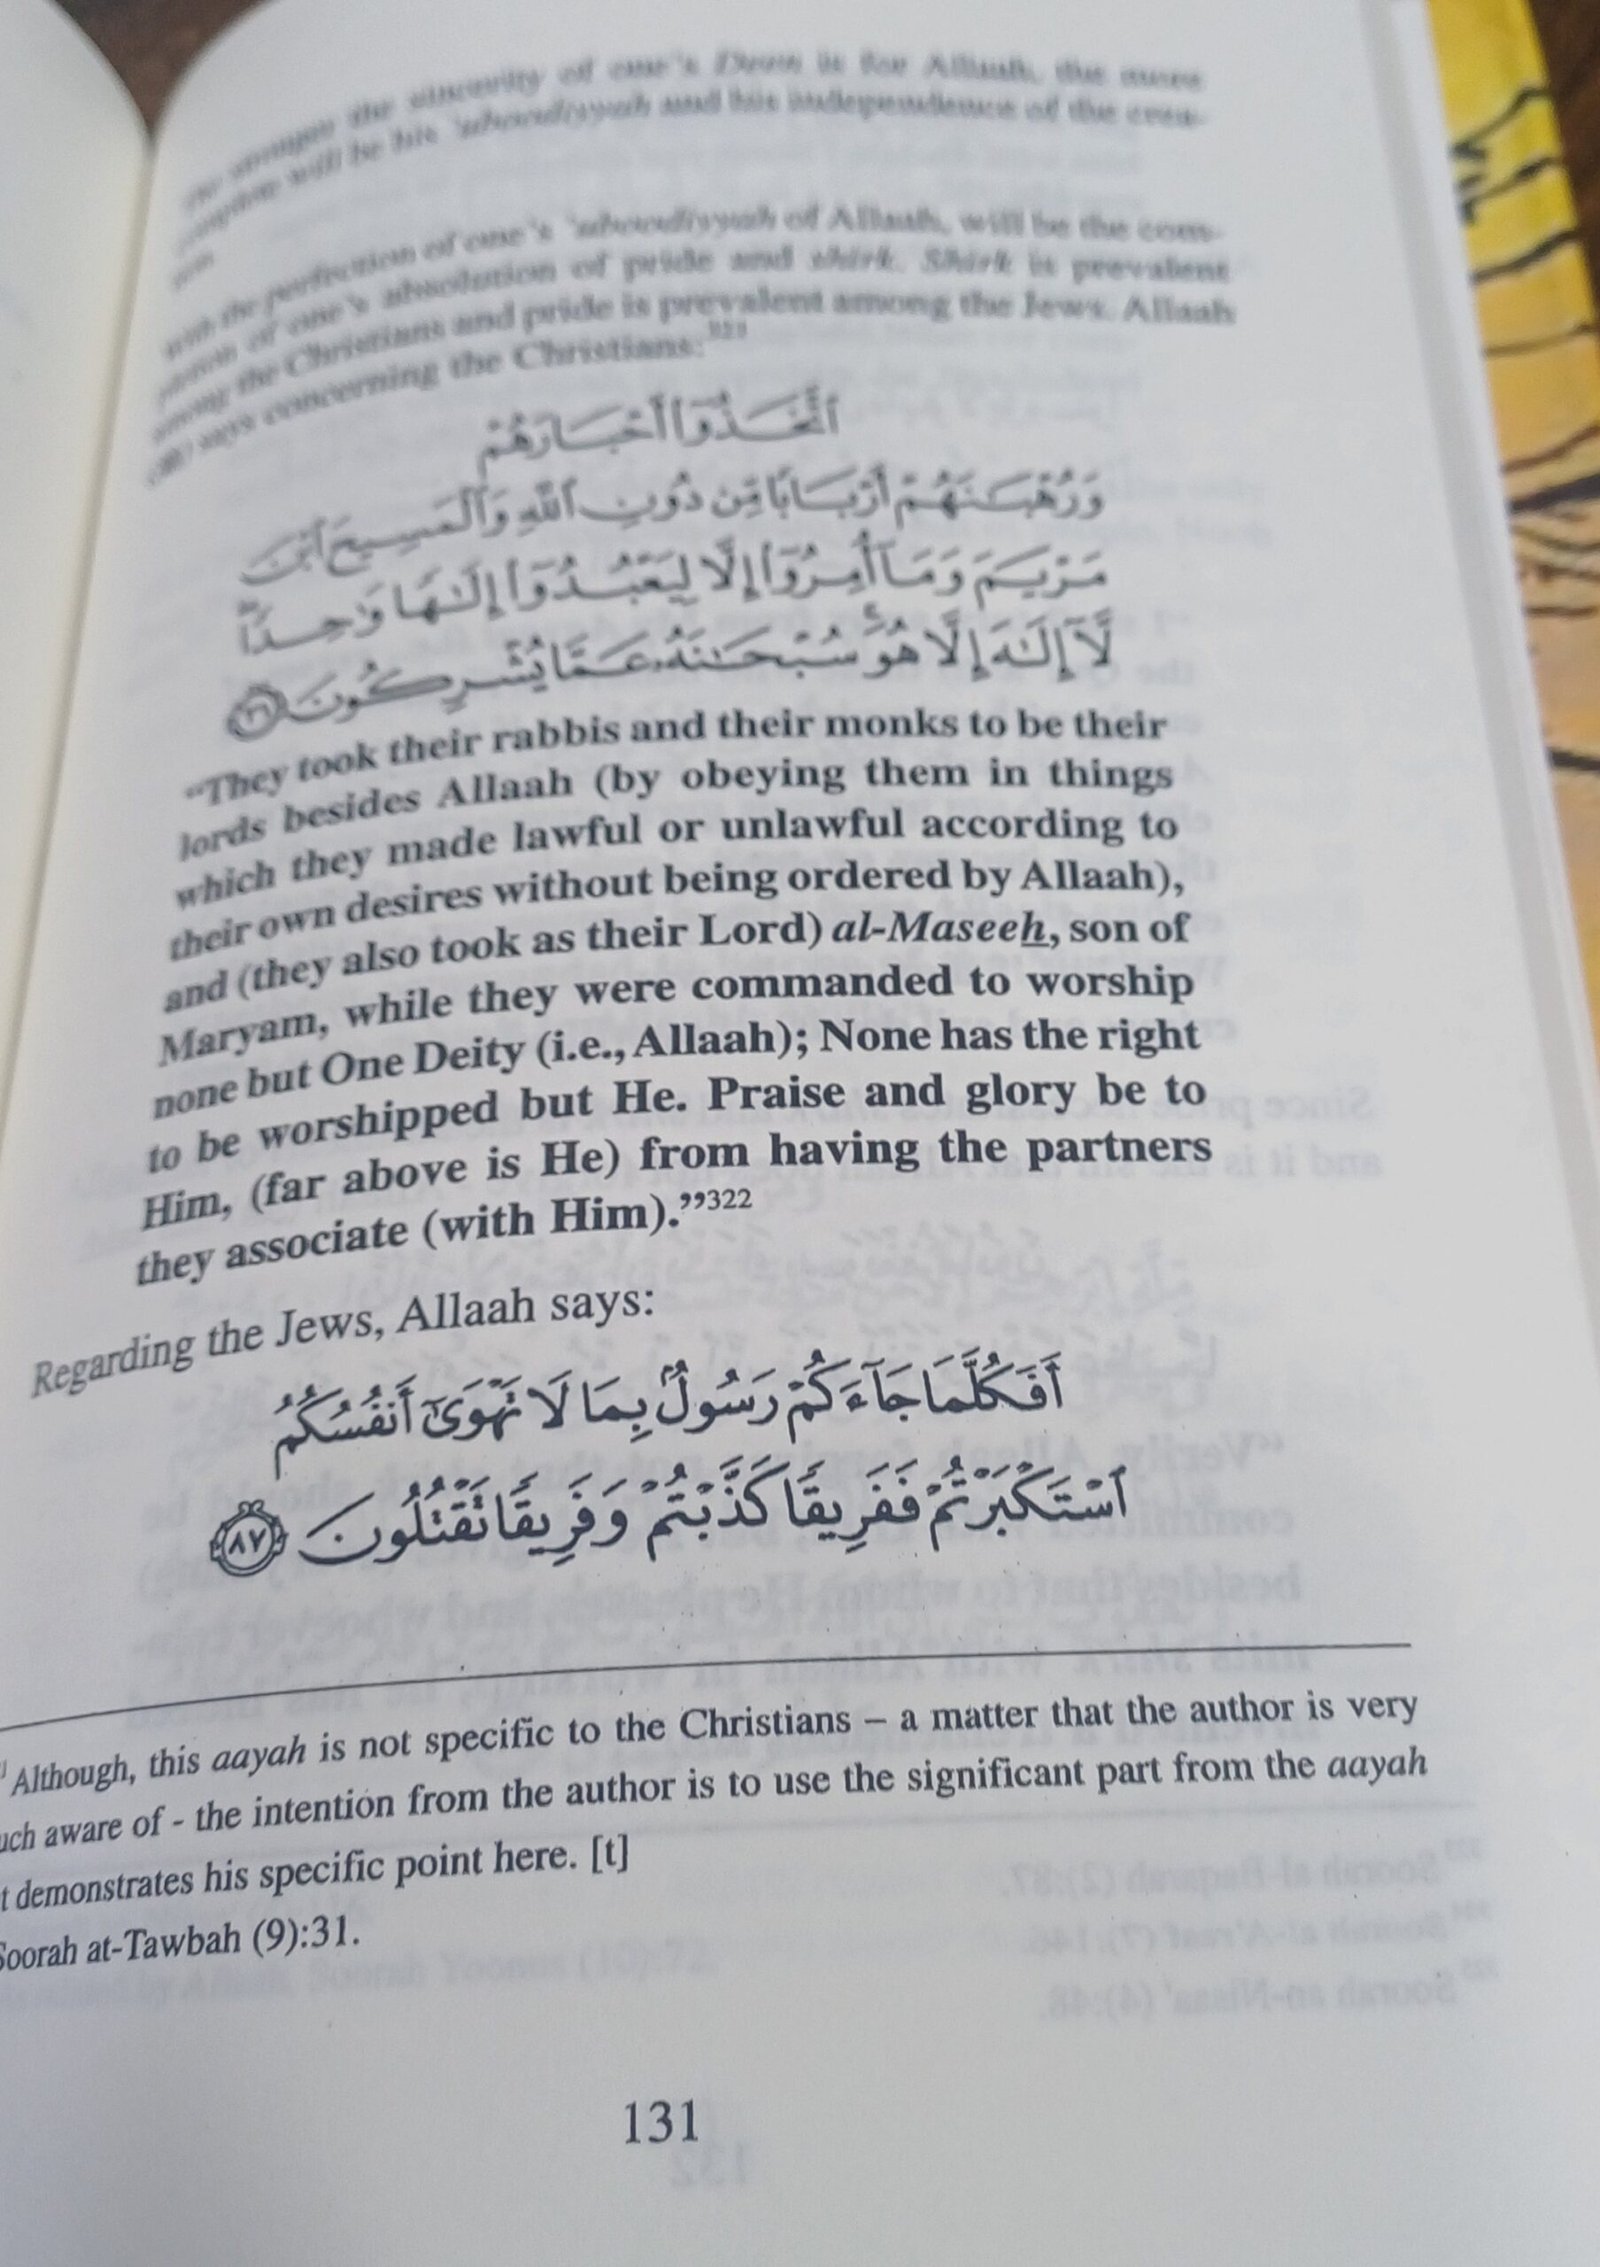 The stronger the sincerity of one's Deen is for Allaah, the more
complete will be his 'uboodiyyah and his independence of the crea-
tion.
with the perfection of one's 'uboodiyyah of Allaah, will be the com-
pletion of one's absolution of pride and shirk. Shirk is prevalent
among the Christians and pride is prevalent among the Jews. Allaah
says concerning the Christians:³²¹
ٱتَّخَذُوٓا۟ أَحْبَارَهُمْ
وَرُهْبَـٰنَهُمْ أَرْبَابًا مِّن دُونِ ٱللَّهِ وَٱلْمَسِيحَ ٱبْنَ
مَرْيَمَ وَمَآ أُمِرُوٓا۟ إِلَّا لِيَعْبُدُوٓا۟ إِلَـٰهًا وَٰحِدًا
لَّآ إِلَـٰهَ إِلَّا هُوَ ۚ سُبْحَـٰنَهُۥ عَمَّا يُشْرِكُونَ ٣١
“They took their rabbis and their monks to be their
lords besides Allaah (by obeying them in things
which they made lawful or unlawful according to
their own desires without being ordered by Allaah),
and (they also took as their Lord) al-Maseeh, son of
Maryam, while they were commanded to worship
none but One Deity (i.e., Allaah); None has the right
to be worshipped but He. Praise and glory be to
Him, (far above is He) from having the partners
they associate (with Him).”³²²
Regarding the Jews, Allaah says:
أَفَكُلَّمَا جَآءَكُمْ رَسُولٌۢ بِمَا لَا تَهْوَىٰٓ أَنفُسُكُمُ
ٱسْتَكْبَرْتُمْ فَفَرِيقًا كَذَّبْتُمْ وَفَرِيقًا تَقْتُلُونَ ٨٧
Although, this aayah is not specific to the Christians – a matter that the author is very
uch aware of - the intention from the author is to use the significant part from the aayah
t demonstrates his specific point here. [t]
Soorah at-Tawbah (9):31.
131